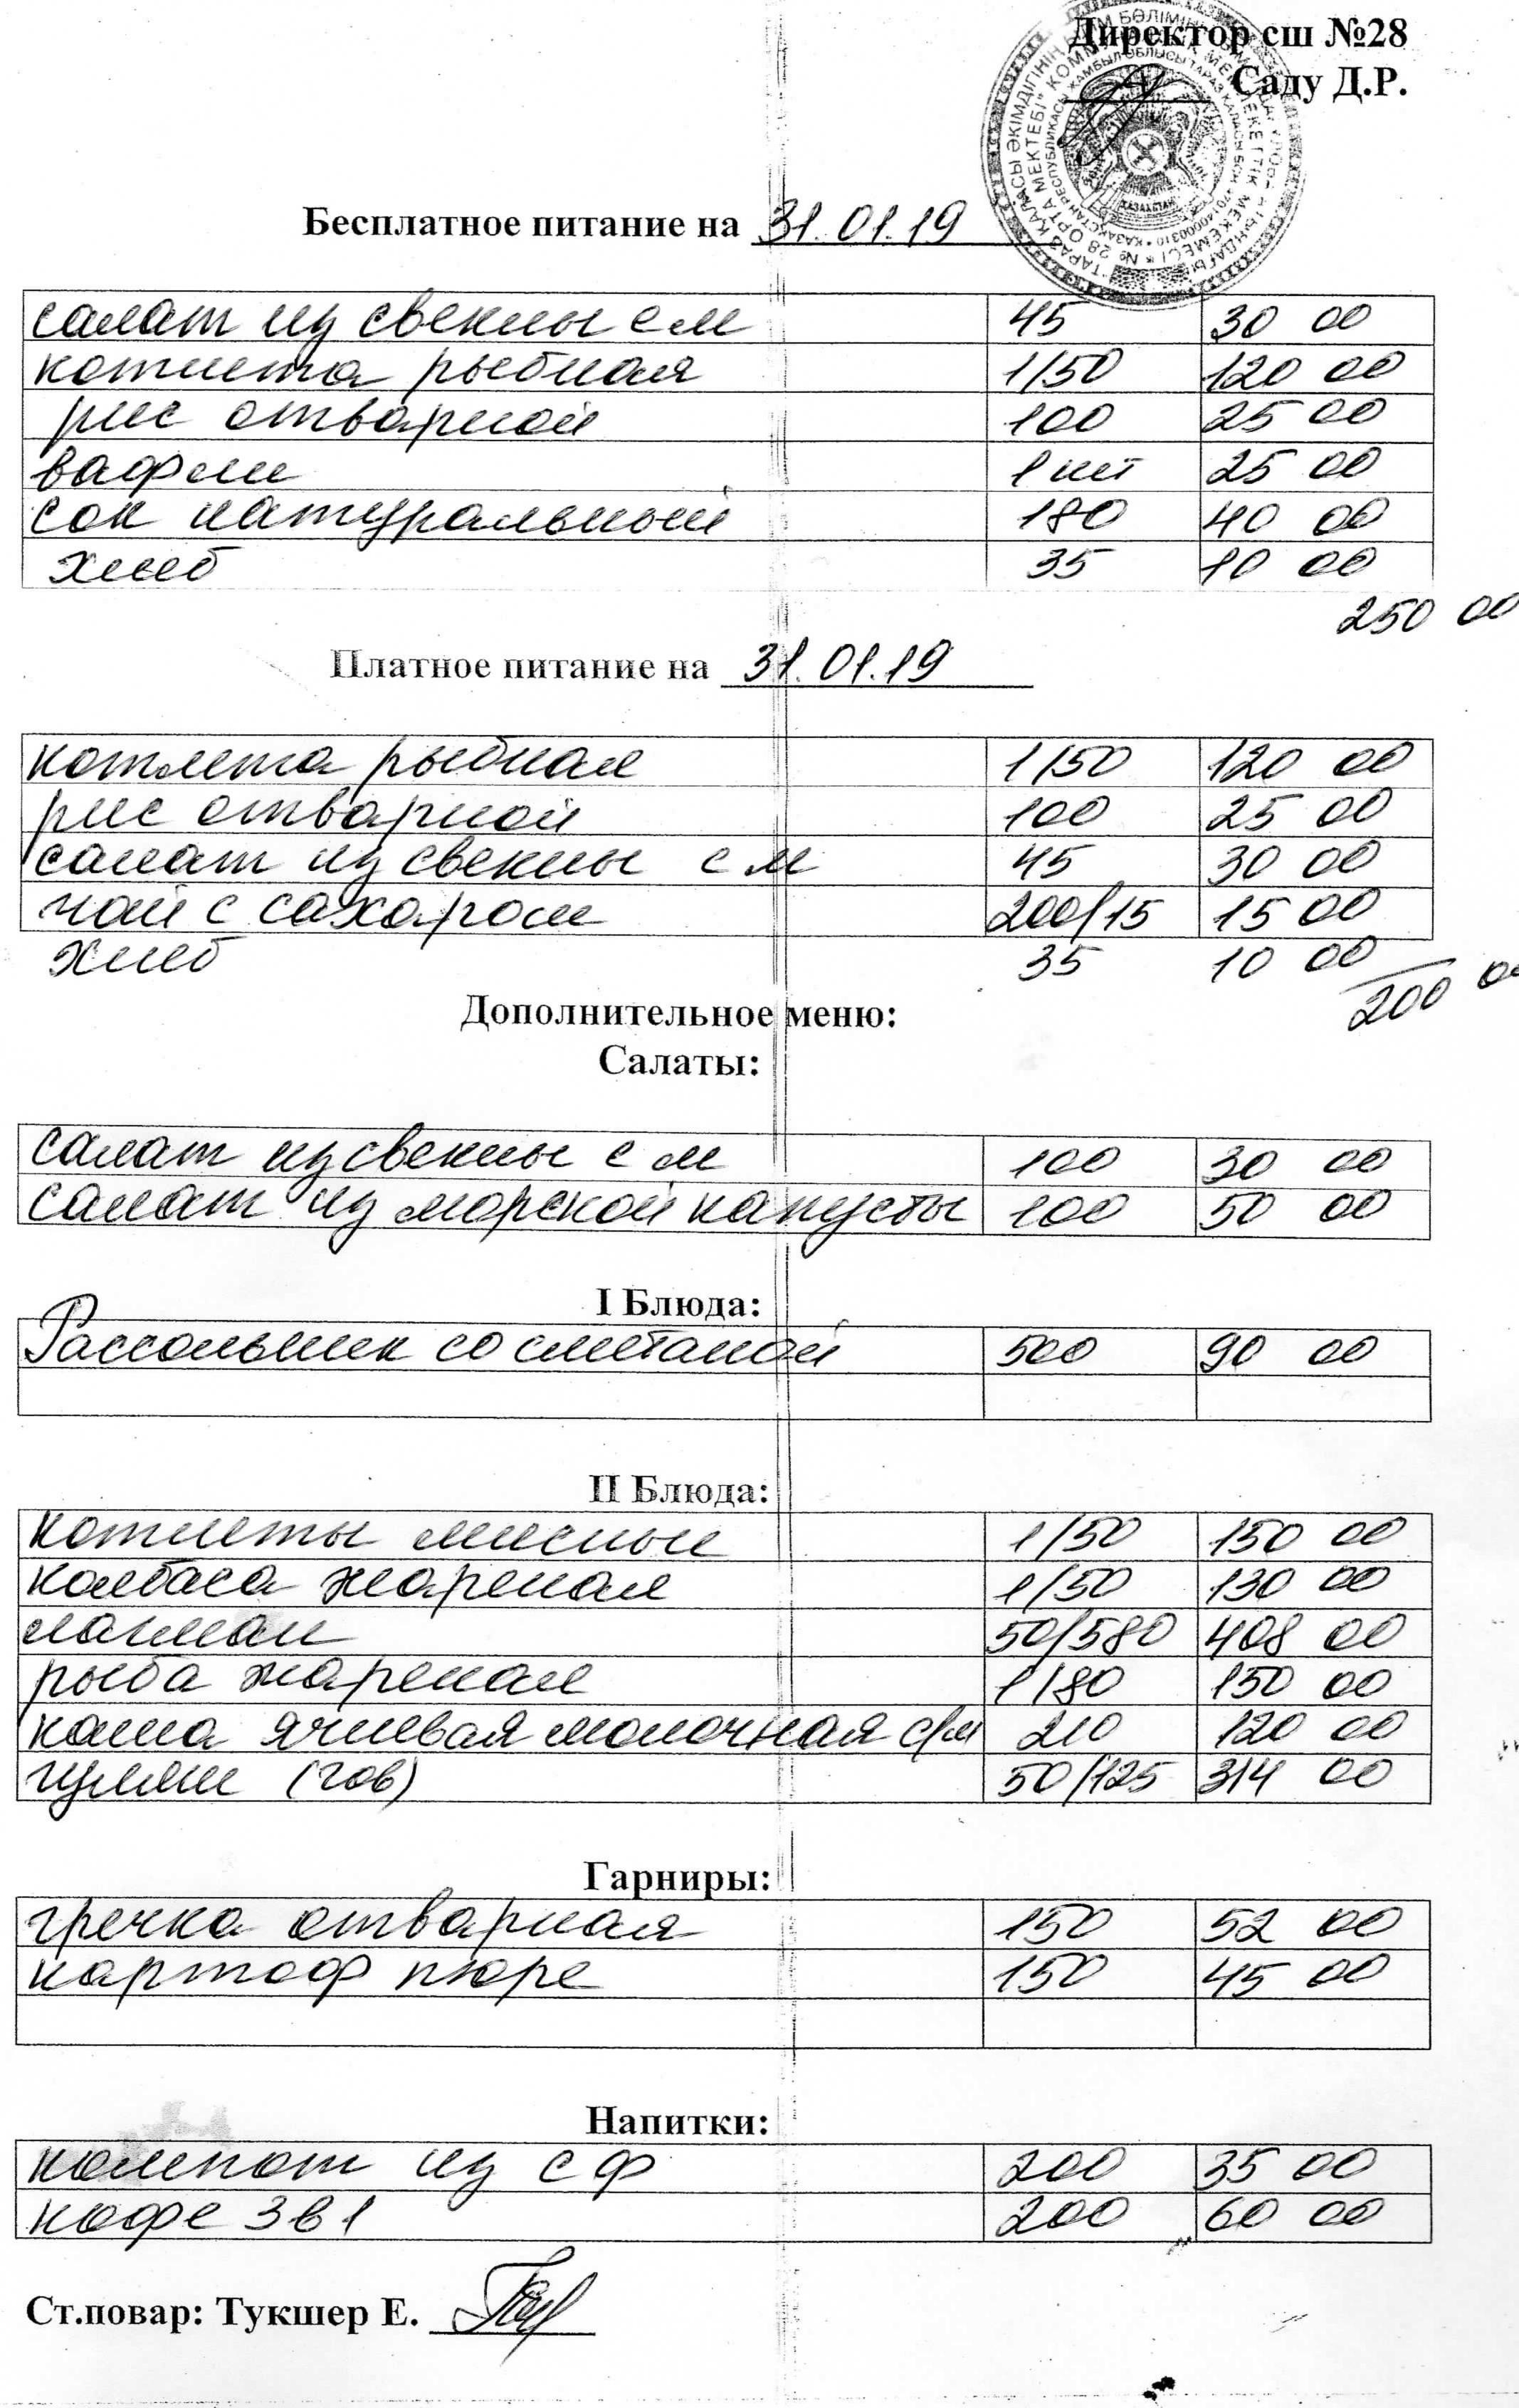 Директор сш №28
Саду Д.Р.
Бесплатное питание на 31.01.19
салат из свеклы с м 45 30 00
котлета рыбная 1/50 120 00
рис отварной 100 25 00
вафли 1 шт 25 00
сок натуральный 180 40 00
хлеб 35 10 00
250 00
Платное питание на 31.01.19
котлета рыбная 1/50 120 00
рис отварной 100 25 00
салат из свеклы с м 45 30 00
чай с сахаром 200/15 15 00
хлеб 35 10 00
200 00
Дополнительное меню:
Салаты:
салат из свеклы с м 100 30 00
салат из морской капусты 100 50 00
I Блюда:
Рассольник со сметаной 500 90 00
II Блюда:
котлеты мясные 1/50 150 00
колбаса жареная 1/50 130 00
лагман 50/580 408 00
рыба жареная 1/80 150 00
каша ячневая молочная с/м 210 120 00
гуляш (гов) 50/125 314 00
Гарниры:
гречка отварная 150 52 00
картоф пюре 150 45 00
Напитки:
компот из с ф 200 35 00
кофе 3 в 1 200 60 00
Ст.повар: Тукшер Е.